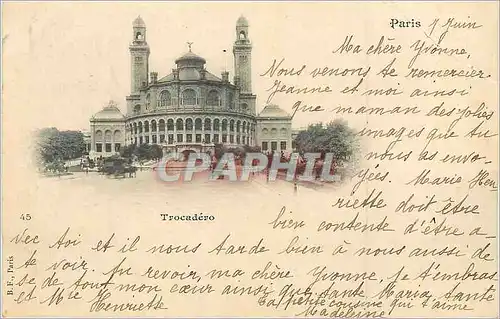 Paris
7 Juin
Ma chère Yvonne,
Nous venons te remercier
Jeanne et moi ainsi
que maman des jolies
images que tu
nous as envo-
yées. Marie Hen-
riette doit être
bien contente d'être a-
vec toi et il nous tarde bien à nous aussi de
te voir. Au revoir, ma chère Yvonne, Je t'embras
se de tout mon cœur ainsi que tante Maria, tante
et Mie Henriette
Ta petite cousine qui t'aime
Madeleine
CAPHIL
45
Trocadéro
B.F. Paris